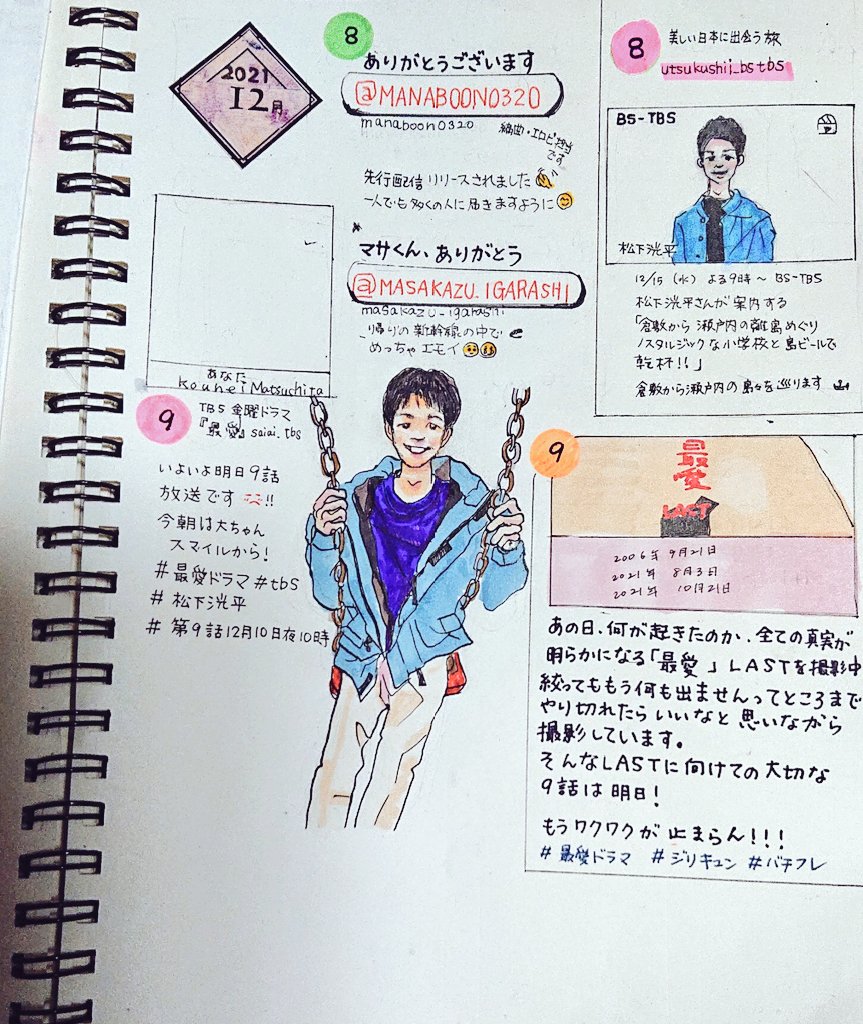 2021
12月
8
ありがとうございます
@MANABOON0320
manaboon0320
編曲・エロピ担当
です
先行配信リリースされました
一人でも多くの人に届きますように
マサくん、ありがとう
@MASAKAZU_IGARASHI
masakazu_igarashi
帰りの新幹線の中で
めっちゃエモイ
あなた
kouhei Matsuchita
8
美しい日本に出会う旅
utsukushii_bstbs
BS-TBS
松下洸平
12/15（水）よる9時〜 BS-TBS
松下洸平さんが案内する
「倉敷から瀬戸内の離島めぐり
ノスタルジックな小学校と島ビールで
乾杯!!」
倉敷から瀬戸内の島々を巡ります
9
TBS金曜ドラマ
『最愛』saiai_tbs
いよいよ明日9話
放送です!!
今朝は大ちゃん
スマイルから!
#最愛ドラマ #tbs
#松下洸平
#第9話12月10日夜10時
9
最愛
LAST
2006年 9月21日
2021年 8月3日
2021年 10月21日
あの日、何が起きたのか、全ての真実が
明らかになる「最愛」LASTを撮影中
絞ってももう何も出ませんってところまで
やり切れたらいいなと思いながら
撮影しています。
そんなLASTに向けての大切な
9話は明日!
もうワクワクが止まらん!!!
#最愛ドラマ #ジリキュン #バチフレ